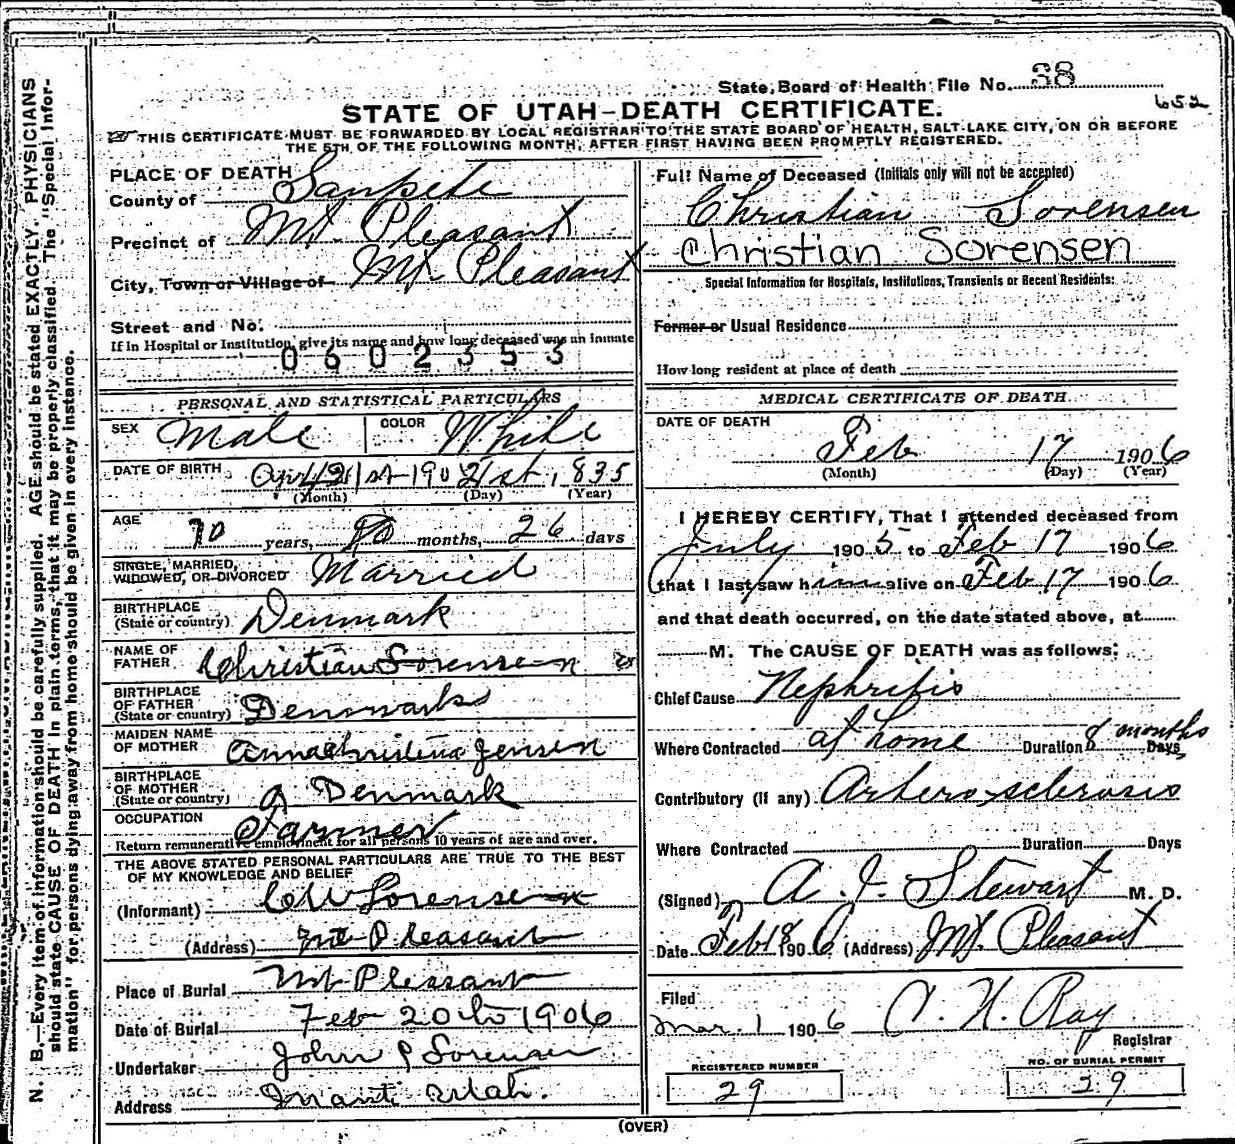 N. B.—Every item of information should be carefully supplied. AGE should be stated EXACTLY. PHYSICIANS
should state CAUSE OF DEATH in plain terms, that it may be properly classified. The "Special Infor-
mation" for persons dying away from home should be given in every instance.
State Board of Health File No. 38
652
STATE OF UTAH—DEATH CERTIFICATE.
THIS CERTIFICATE MUST BE FORWARDED BY LOCAL REGISTRAR TO THE STATE BOARD OF HEALTH, SALT LAKE CITY, ON OR BEFORE
THE 5TH OF THE FOLLOWING MONTH, AFTER FIRST HAVING BEEN PROMPTLY REGISTERED.
PLACE OF DEATH
County of Sanpete
Precinct of Mt. Pleasant
City, Town or Village of Mt Pleasant
Street and No.
If in Hospital or Institution, give its name and how long deceased was an inmate
0602353
PERSONAL AND STATISTICAL PARTICULARS
SEX Male COLOR White
DATE OF BIRTH 21st, 1835
(Month) (Day) (Year)
AGE 70 years, months, 26 days
SINGLE, MARRIED,
WIDOWED, OR DIVORCED Married
BIRTHPLACE
(State or country) Denmark
NAME OF
FATHER Christian Sorensen
BIRTHPLACE
OF FATHER
(State or country) Denmark
MAIDEN NAME
OF MOTHER Anna Christina Jensen
BIRTHPLACE
OF MOTHER
(State or country) Denmark
OCCUPATION
Farmer
Return remunerative employment for all persons 10 years of age and over.
THE ABOVE STATED PERSONAL PARTICULARS ARE TRUE TO THE BEST
OF MY KNOWLEDGE AND BELIEF
(Informant) C W Sorensen
(Address) Mt Pleasant
Place of Burial Mt Pleasant
Date of Burial Feb 20th 1906
Undertaker John P Sorensen
Address Manti Utah.
Full Name of Deceased (Initials only will not be accepted)
Christian Sorensen
Christian Sorensen
Special Information for Hospitals, Institutions, Transients or Recent Residents:
Former or Usual Residence
How long resident at place of death
MEDICAL CERTIFICATE OF DEATH
DATE OF DEATH
Feb 17 1906
(Month) (Day) (Year)
I HEREBY CERTIFY, That I attended deceased from
July 1905 to Feb 17 1906
that I last saw him alive on Feb 17 1906
and that death occurred, on the date stated above, at
M. The CAUSE OF DEATH was as follows:
Chief Cause Nephritis
Where Contracted at home Duration 8 months Days
Contributory (if any) Artero-sclerosis
Where Contracted Duration Days
(Signed) A. J. Stewart M. D.
Date Feb 18 1906 (Address) Mt. Pleasant
Filed
Mar. 1 1906 Ray
Registrar
REGISTERED NUMBER
29
NO. OF BURIAL PERMIT
29
(OVER)